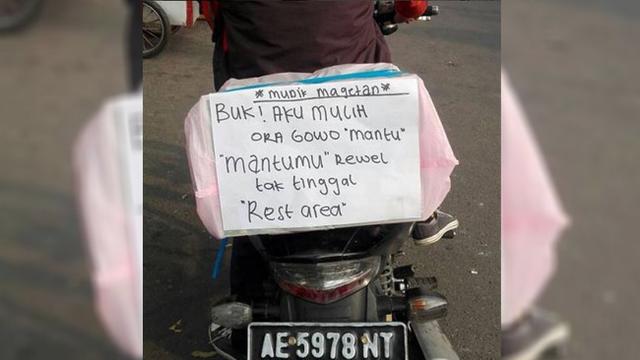 * mudik magetan *
BUK! AKU MULIH
ORA GOWO "mantu"
"mantumu" Rewel
tak tinggal
"Rest area"
AE 5978 NT